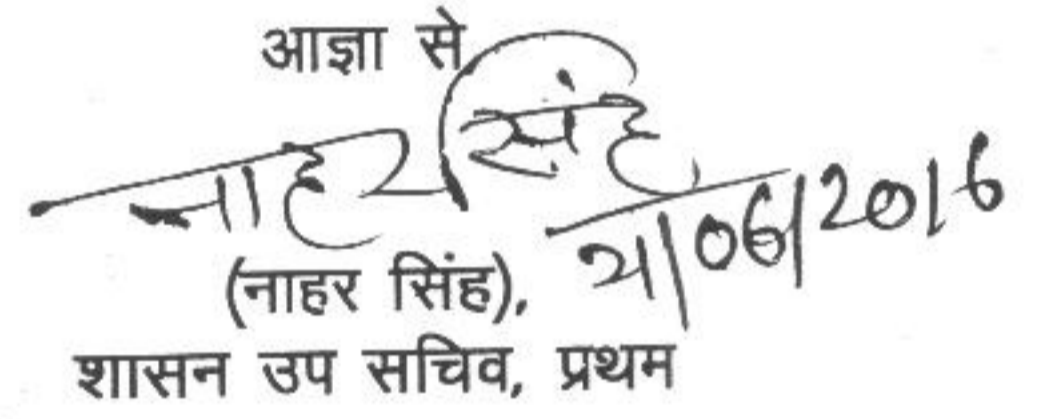 आज्ञा से
नाहर सिंह
21/06/2016
(नाहर सिंह),
शासन उप सचिव, प्रथम